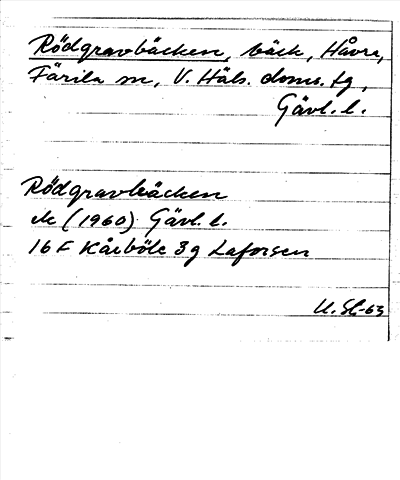 Rödgravbäcken, bäck, Håvra,
Färila sn, V. Häls. doms. tg,
Gävl. l.
Rödgravbäcken
ek (1960) Gävl. l.
16 F Kårböle 3 g Laforsen
U. Sl-63